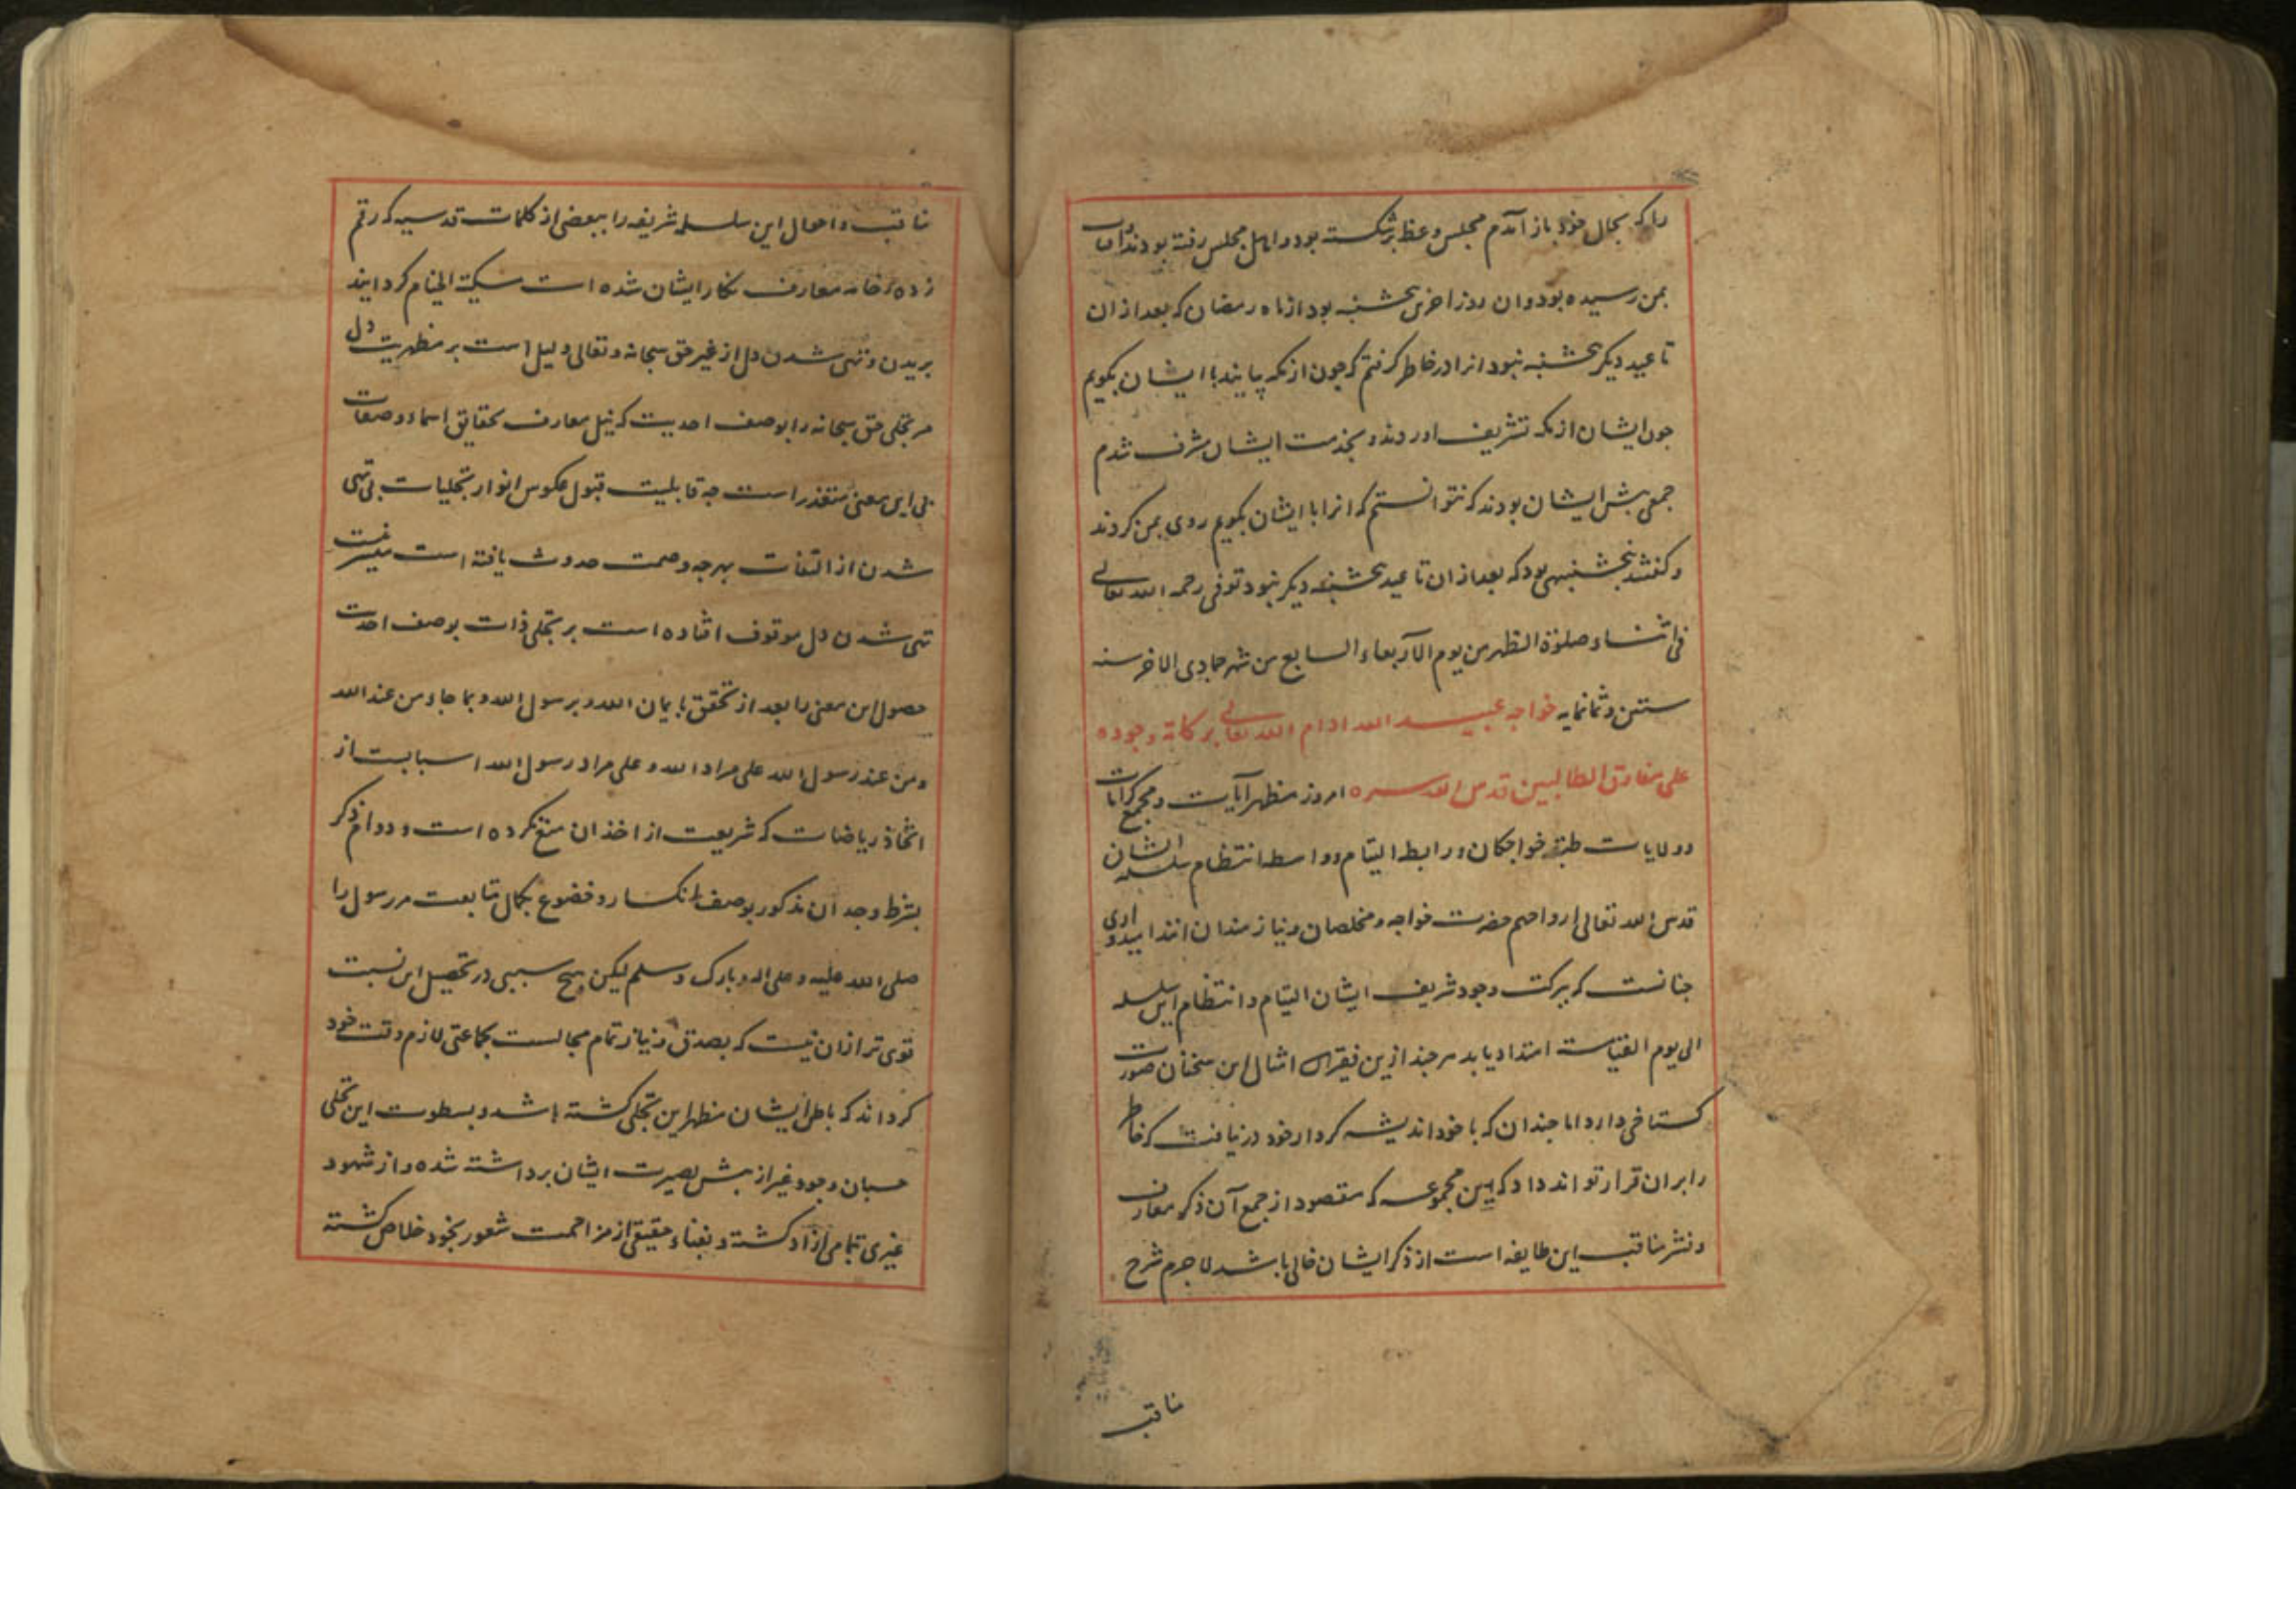 را که بحال خود باز آمدم مجلس وعظ برشکسته بود و اهل مجلس رفته بودند و آفتاب
بمن رسیده بود و ان روز اخرین پنجشنبه بود از ماه رمضان که بعد از ان
تا عید دیکر پنجشنبه نبود انرا در خاطر کرفتم که جون از مکه بیایند با ایشان بکویم
جون ایشان از مکه تشریف اوردند و بخدمت ایشان مشرف شدم
جمعی پیش ایشان بودند که نتوانستم که انرا با ایشان بکویم روی بمن کردند
و کفتند پنجشنبهی بود که بعد از ان تا عید پنجشنبه دیکر نبود توفی رحمه الله تعالی
فی اثناء صلوة الظهر من یوم الآربعاء السابع من شهر جمادی الاخر سنه
ستین و ثمانمایه خواجه عبید الله ادام الله تعالی برکاته وجوده
علی مفارق الطالبین قدس الله سره امروز مظهر آیات و مجمع کرامات
و ولایات طبقه خواجکان و رابطه التیام و واسطه انتظام سلسله ایشان
قدس الله تعالی ارواحهم حضرت خواجه و مخلصان و نیازمندان انند امیدواری
جنانست که ببرکت وجود شریف ایشان التیام و انتظام این سلسله
الی یوم القیامت امتداد یابد هر جند ازین فقیر امثال این سخنان صورت
کستاخی دارد اما جندان که با خود اندیشه کردار خود درنیافت که خاطر
را بران قرار تواند داد که این مجموعه که مقصود از جمع آن ذکر معارف
و نشر مناقب این طایفه است از ذکر ایشان خالی باشد لاجرم شرح
مناقب
مناقب و احوال این سلسله شریفه را ببعضی از کلمات قدسیه که رقم
زده خامه معارف نکار ایشان شده است مسکیة الختام کردانید
بریدن و تهی شدن دل از غیر حق سبحانه و تعالی دلیل است بر مظهریت دل
مر تجلی حق سبحانه را بوصف احدیت که نیل معارف بحقایق اسماء و صفات
بی این معنی متعذر است جه قابلیت قبول عکوس انوار تجلیات بی تهی
شدن از التفات بهرجه وصمت حدوث یافته است میسر نیست
تهی شدن دل موقوف افتاده است بر تجلی ذات بوصف احدیت
حصول این معنی را بعد از تحقق بایمان الله و برسول الله و بما جاء من عند الله
و من عند رسول الله علی مراد الله و علی مراد رسول الله اسبابست از
اتخاذ ریاضات که شریعت از اخذ ان منع نکرده است و دوام ذکر
بشرط وجدان مذکور بوصف انکسار و خضوع بکمال متابعت مر رسول را
صلی الله علیه و علی اله و بارک و سلم لیکن هیج سببی در تحصیل این نسبت
قوی تر ازان نیست که بصدق و نیاز تمام مجالست بجماعتی لازم وقت خود
کرداند که باطن ایشان مظهر این تجلی کشته باشد و بسطوت این تجلی
حسبان وجود غیر از پیش بصیرت ایشان برداشته شده و از شهود
غیری بتمامی آزاد کشته و بفناء حقیقی از مزاحمت شعور بخود خلاص کشته